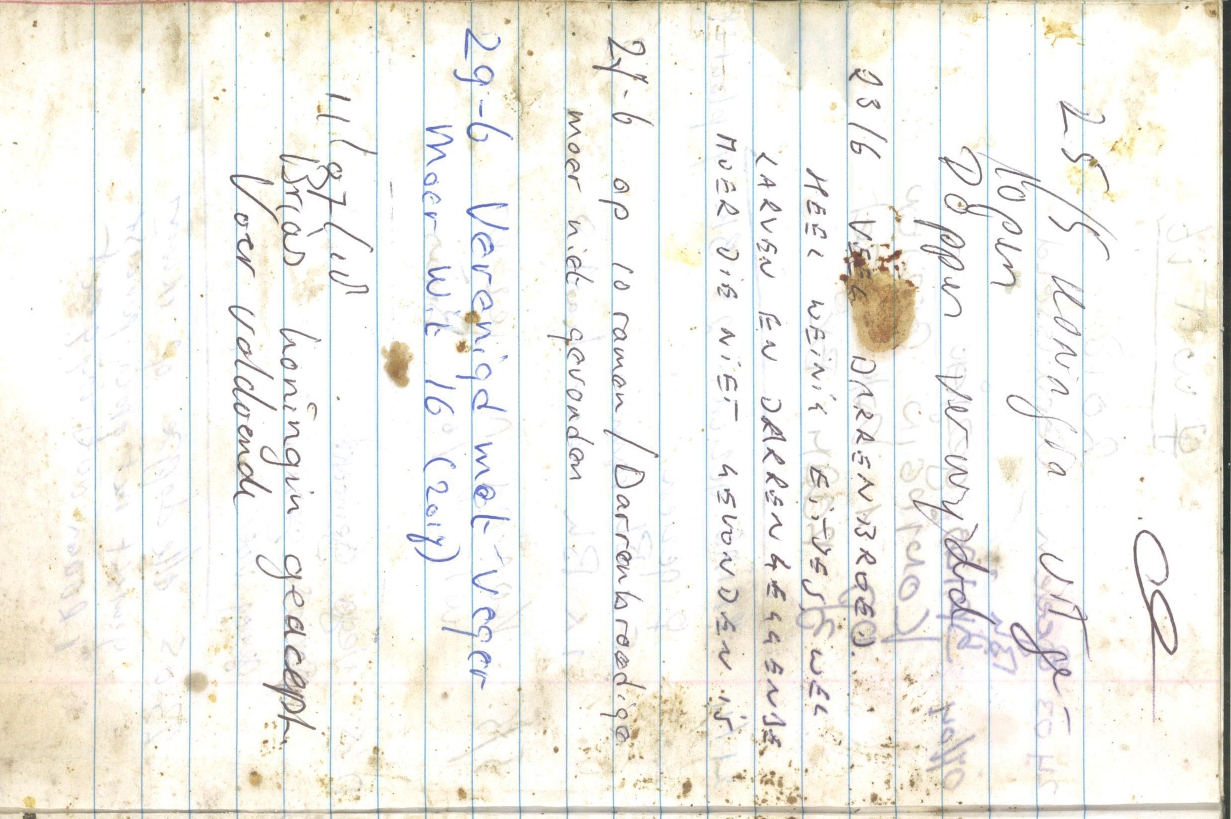 25/5 Koningin uitge
lopen
Doppen verwijderd
23/6 VEEL DARRENBROED.
HEEL WEINIG EITJES, WEL
LARVEN EN DARRENLEGGENDE
MOER DIE NIET GEVONDEN IS
27-6 op 10 ramen / Darrenbroedige
moer niet gevonden
29-6 Verenigd met veger
Moer wit 16 (2017)
11/07/18
Brias koningin geaccept.
Voer voldoende